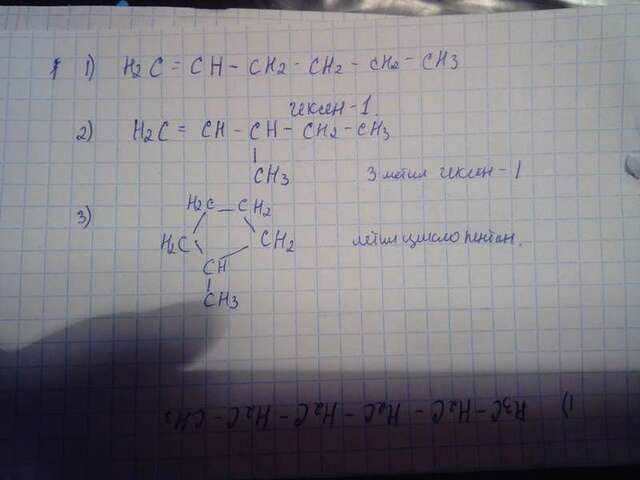 1 1) H2C = CH - CH2 - CH2 - CH2 - CH3
гексен-1.
2) H2C = CH - CH - CH2 - CH3
CH3
3 метил гексен-1
3)
H2C - CH2
H2C CH2
метил цикло пентан.
CH
CH3
1) H3C - H2C - H2C - H2C - H2C - CH3